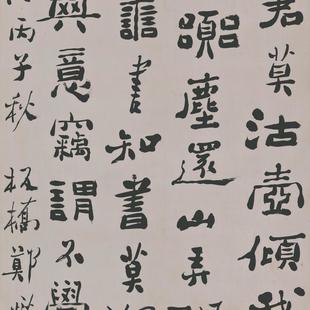 君莫沽壺傾我
塵還山弄
書知書莫
意竊謂不學
丙子秋板橋鄭燮